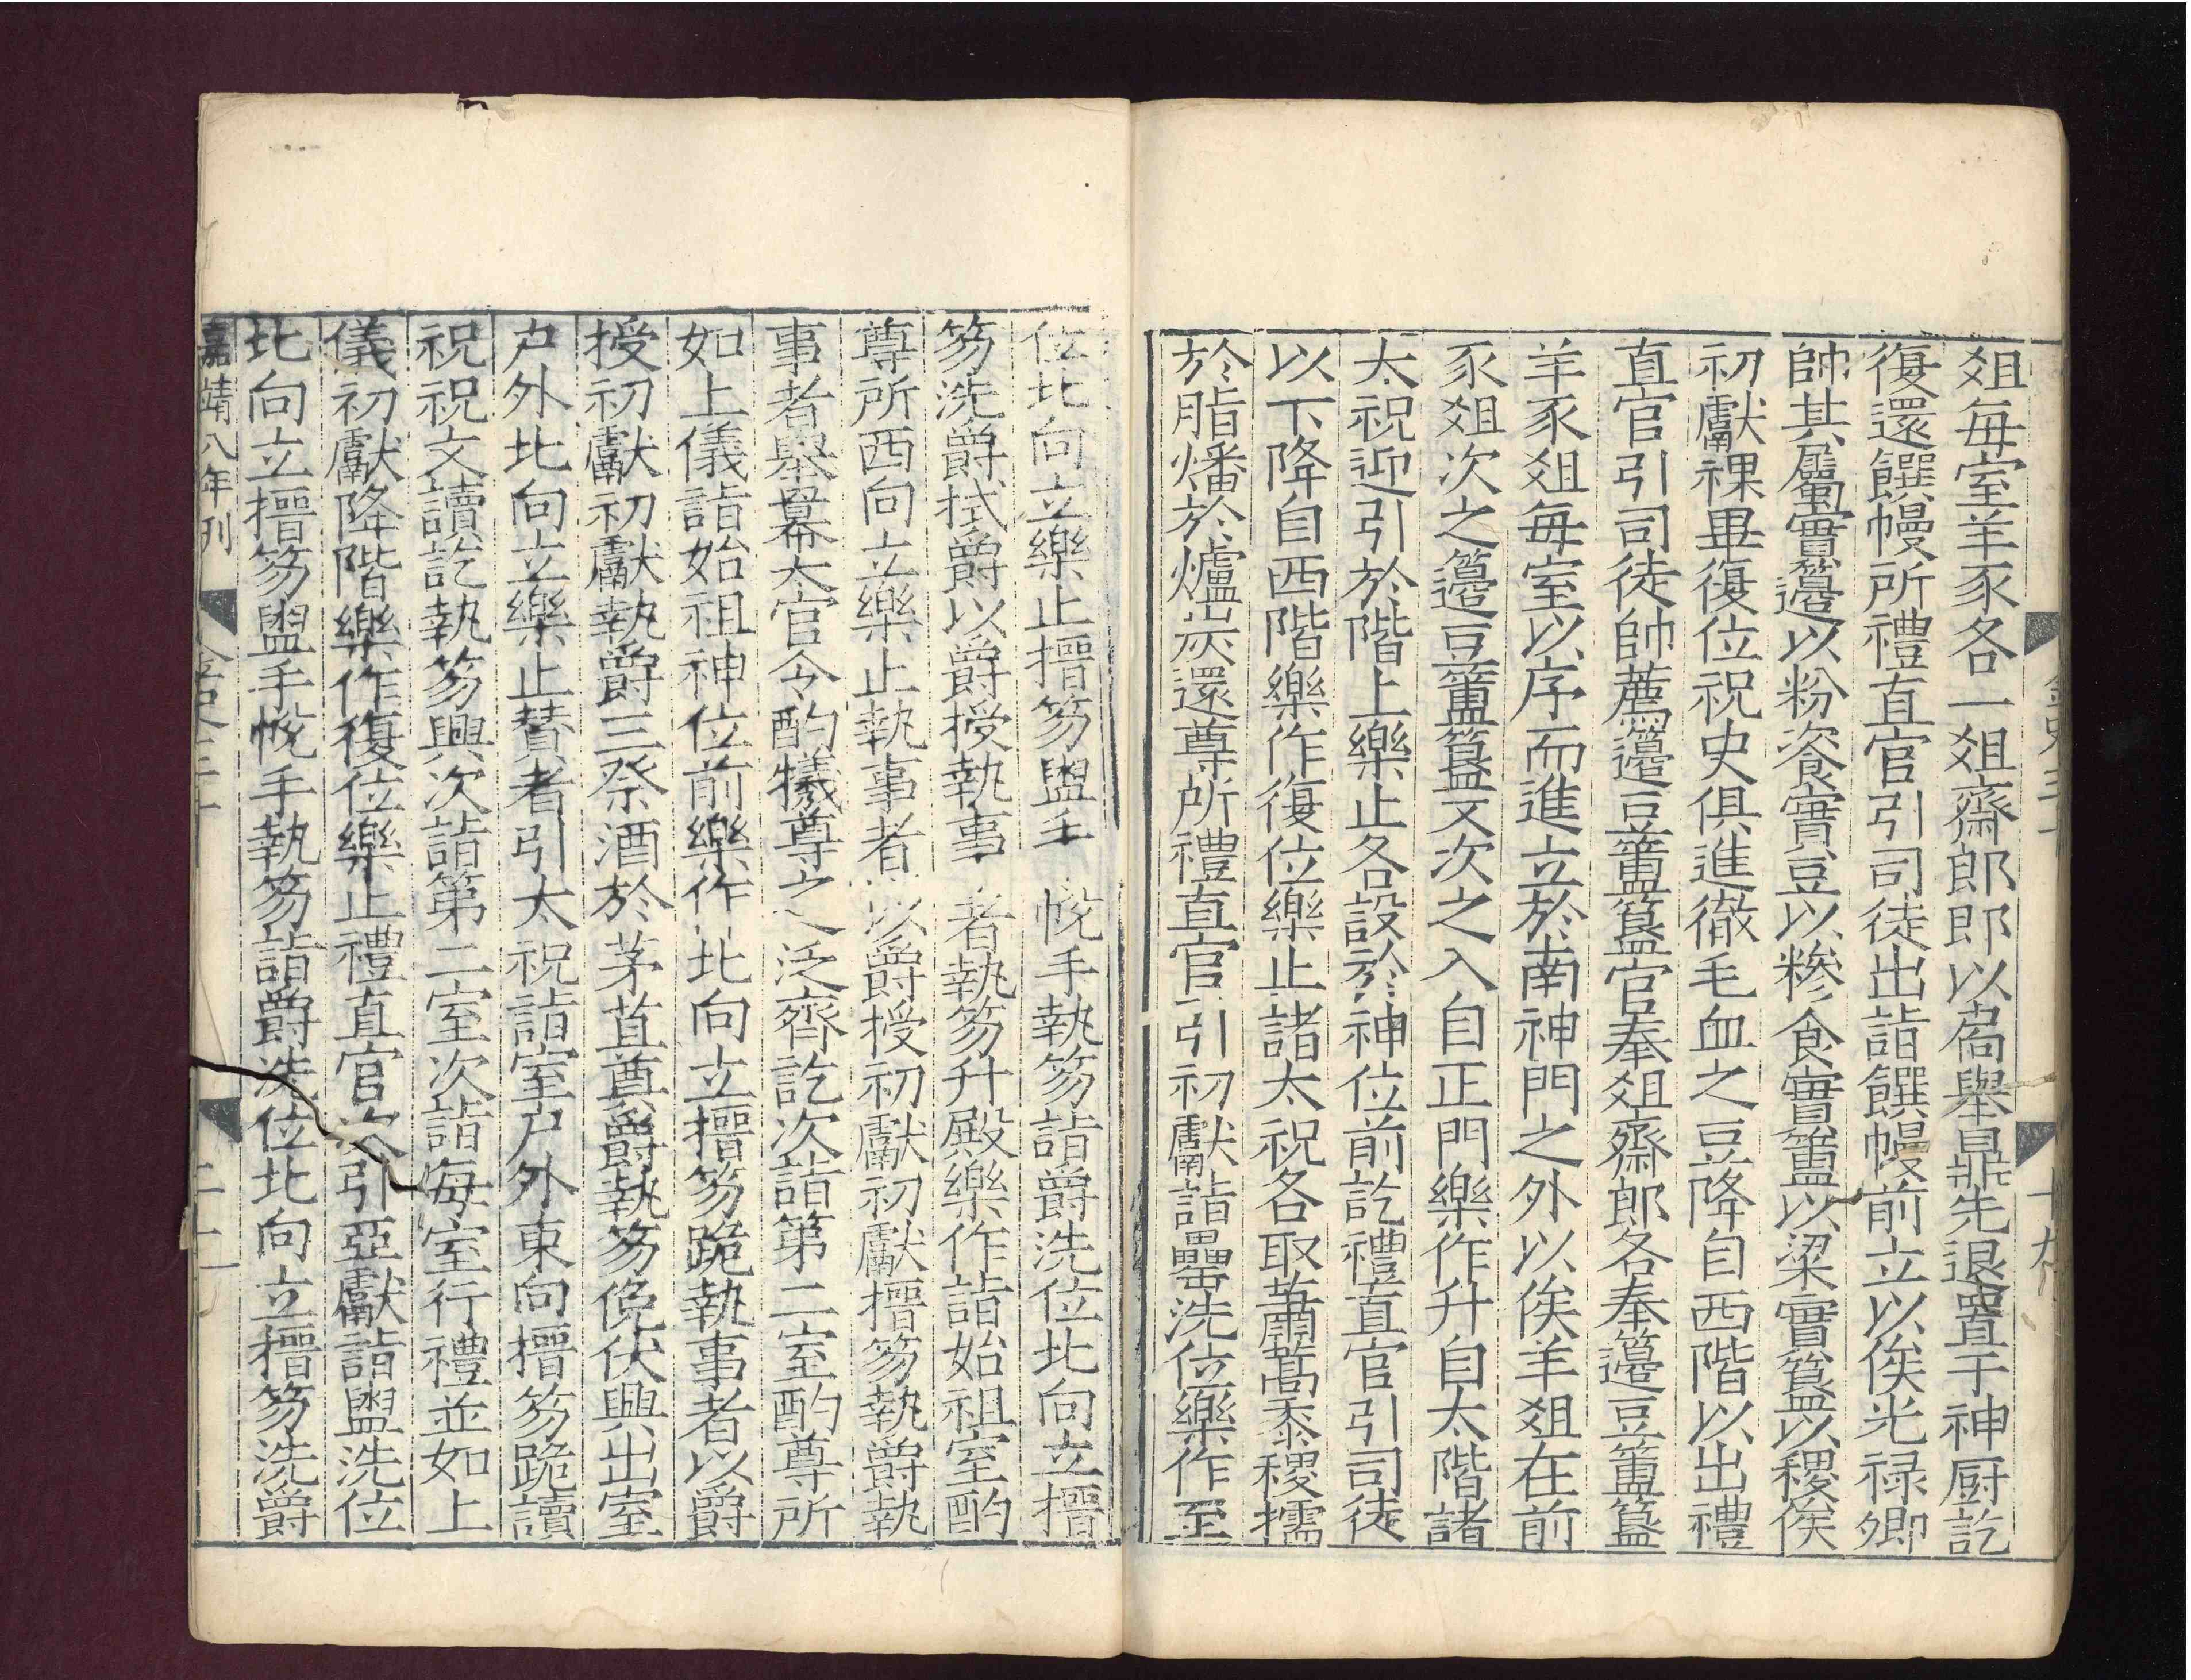 俎每室羊豕各一俎齋郎郎以扃舉鼎先退置于神厨訖
復還饌幔所禮直官引司徒出詣饌幔前立以俟光禄卿
帥其屬實籩以粉餈實豆以糝食實簠以梁實簋以稷俟
初獻祼畢復位祝史俱進徹毛血之豆降自西階以出禮
直官引司徒帥薦籩豆簠簋官奉俎齋郎各奉籩豆簠簋
羊豕俎每室以序而進立於南神門之外以俟羊俎在前
豕俎次之籩豆簠簋又次之入自正門樂作升自太階諸
太祝迎引於階上樂止各設於神位前訖禮直官引司徒
以下降自西階樂作復位樂止諸太祝各取蕭蒿黍稷擩
於脂燔於爐炭還尊所禮直官引初獻詣罍洗位樂作至
位北向立樂止搢笏盥手帨手執笏詣爵洗位北向立搢
笏洗爵拭爵以爵授執事者執笏升殿樂作詣始祖室酌
尊所西向立樂止執事者以爵授初獻初獻搢笏執爵執
事者舉羃太官令酌犧尊之泛齊訖次詣第二室酌尊所
如上儀詣始祖神位前樂作北向立搢笏跪執事者以爵
授初獻初獻執爵三祭酒於茅苴奠爵執笏俛伏興出室
户外北向立樂止贊者引太祝詣室户外東向搢笏跪讀
祝祝文讀訖執笏興次詣第二室次詣每室行禮並如上
儀初獻降階樂作復位樂止禮直官次引亞獻詣盥洗位
北向立搢笏盥手帨手執笏詣爵洗位北向立搢笏洗爵
嘉靖八年刊